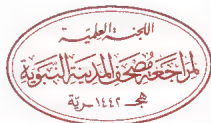 اللجنة العلمية
لمراجعة مصحف المدينة النبوية
١٤٤٢ هجرية